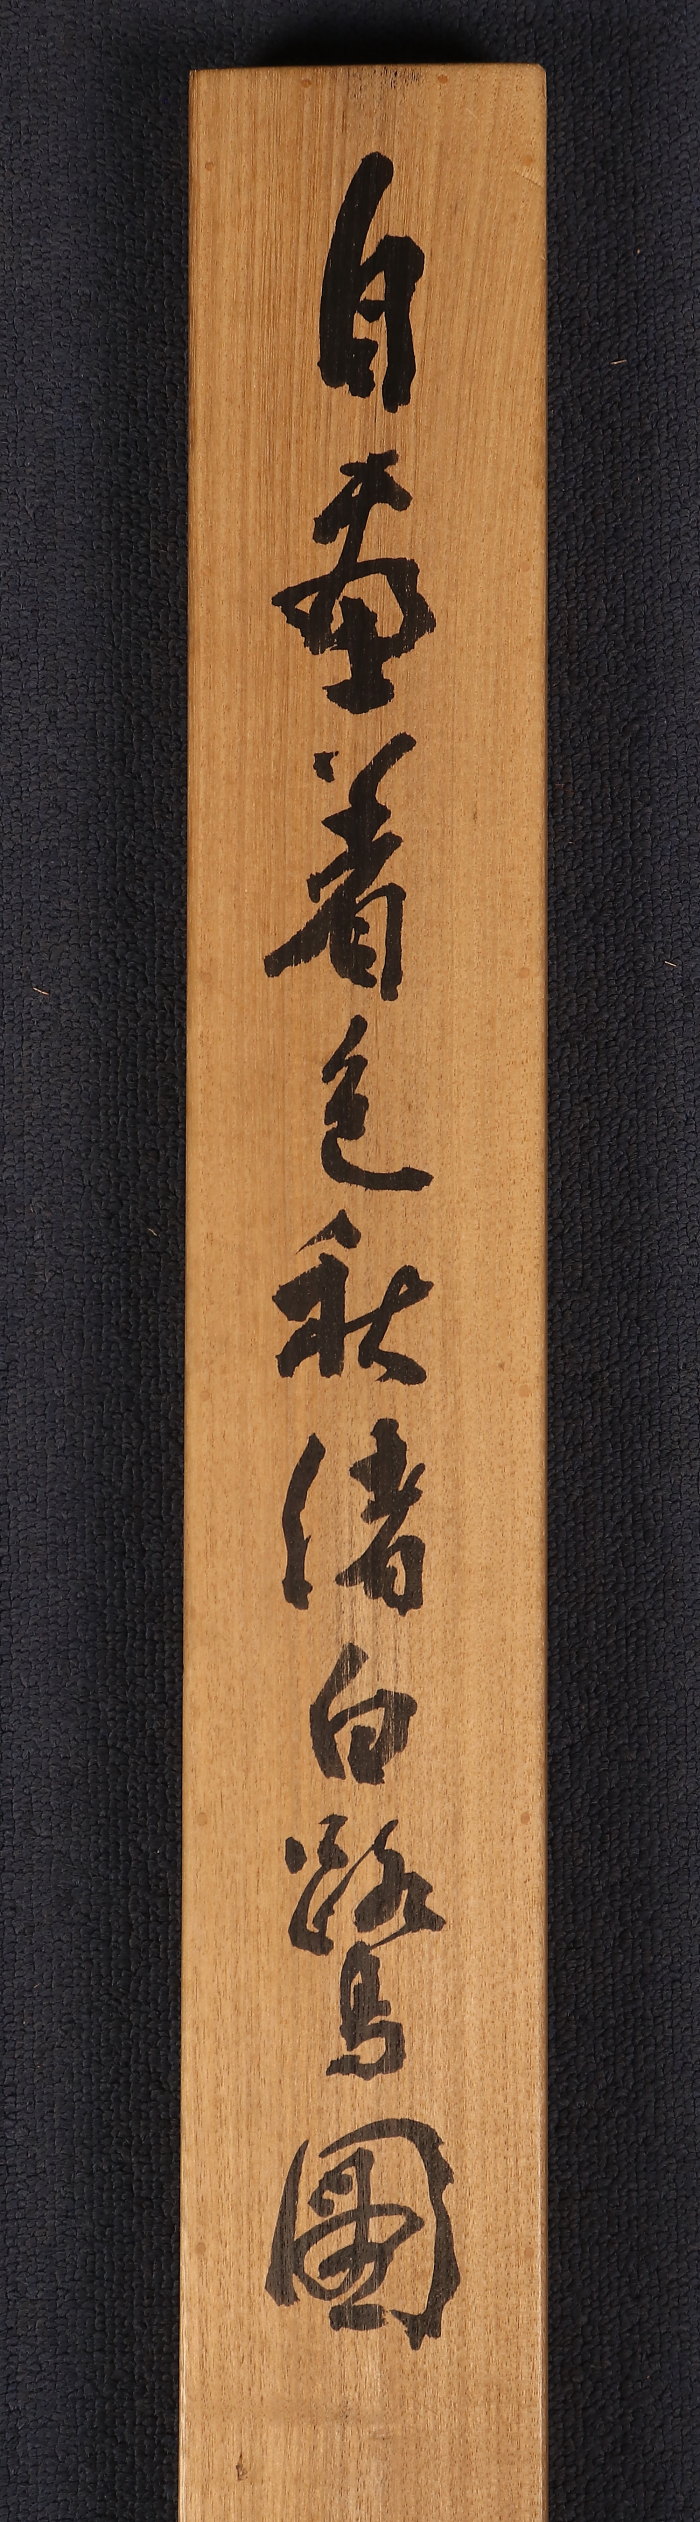 自畫着色秋渚白鷺圖